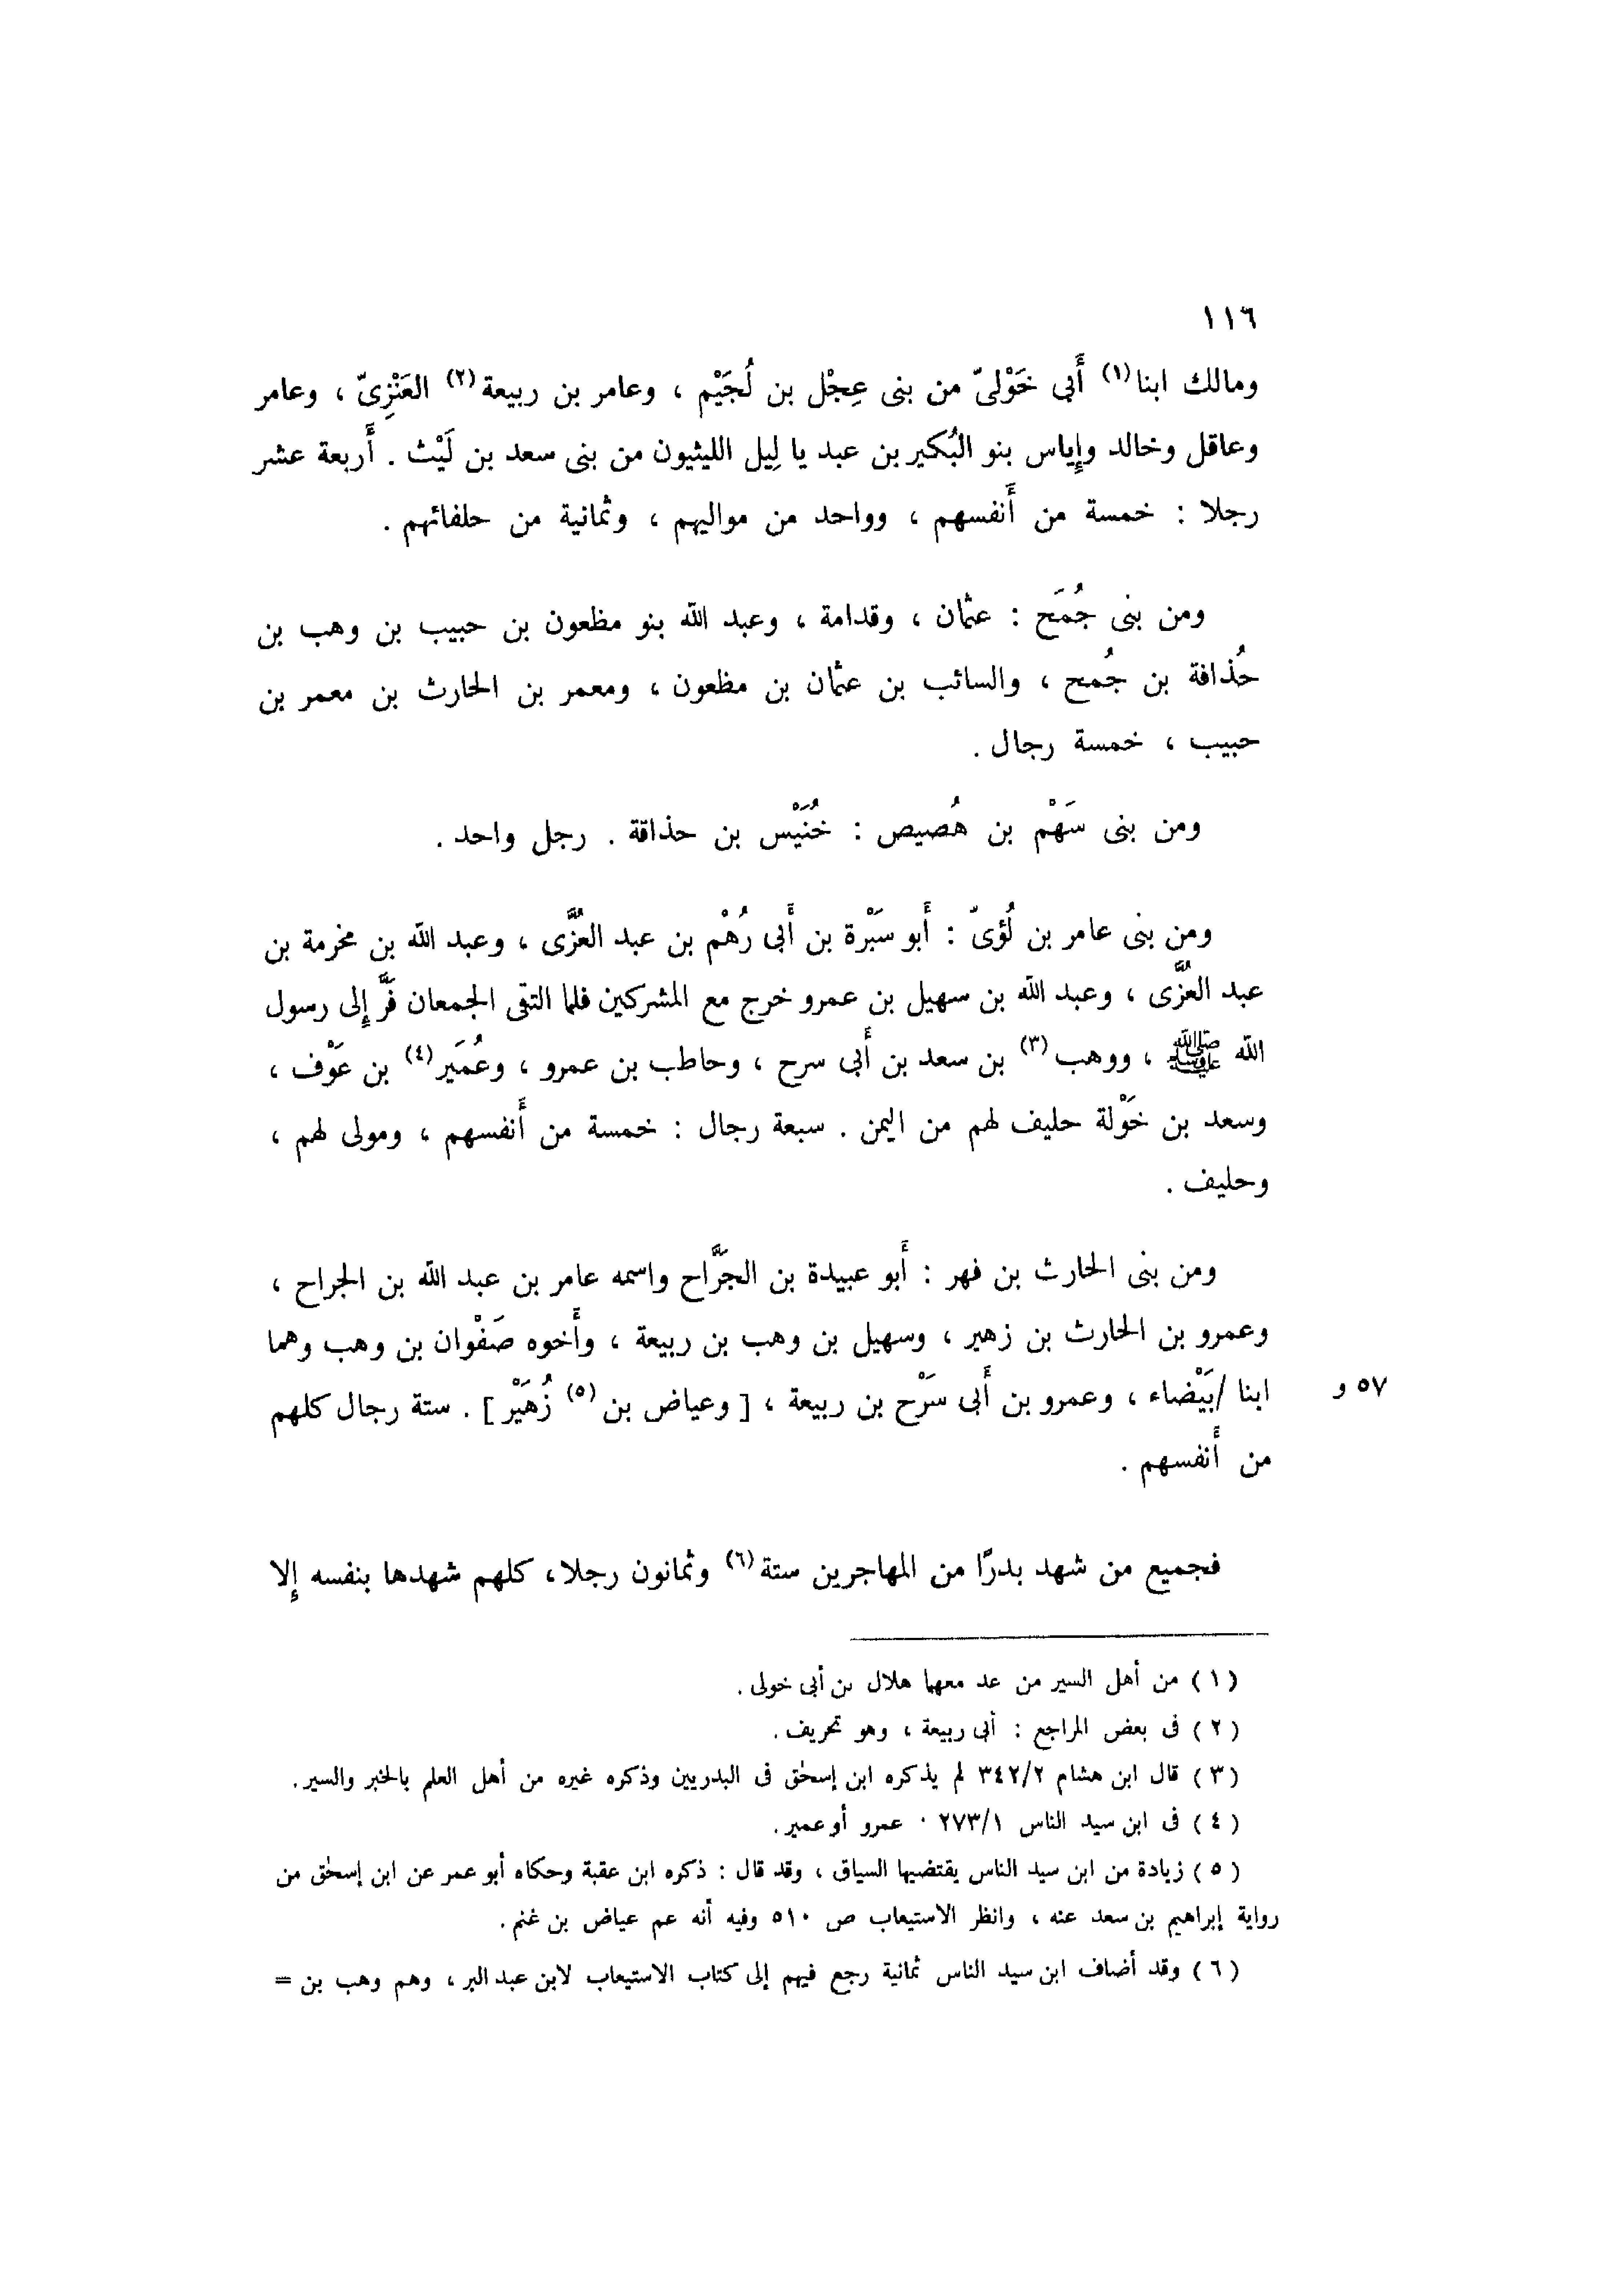 ١١٦
ومالك ابنا(١) أَبى خَوْلىّ من بنى عِجْل بن لُجَيْم ، وعامر بن ربيعة(٢) العَنْزِىّ ، وعامر
وعاقل وخالد وإِياس بنو البُكير بن عبد يا لِيل الليثيون من بنى سعد بن لَيْث . أَربعة عشر
رجلا : خمسة من أَنفسهم ، وواحد من مواليهم ، وثمانية من حلفائهم .
ومن بنى جُمَح : عثمان ، وقدامة ، وعبد الله بنو مظعون بن حبيب بن وهب بن
حُذافة بن جُمح ، والسائب بن عثمان بن مظعون ، ومعمر بن الحارث بن معمر بن
حبيب ، خمسة رجال .
ومن بنى سَهْم بن هُصيص : خُنَيْس بن حذاقة . رجل واحد .
ومن بنى عامر بن لُؤىّ : أَبو سَبْرة بن أَبى رُهْم بن عبد العُزَّى ، وعبد الله بن مخرمة بن
عبد العُزَّى ، وعبد الله بن سهيل بن عمرو خرج مع المشركين فلما التقى الجمعان فَرَّ إِلى رسول
الله ﷺ ، ووهب(٣) بن سعد بن أَبى سرح ، وحاطب بن عمرو ، وعُمَير(٤) بن عَوْف ،
وسعد بن خَوْلة حليف لهم من اليمن . سبعة رجال : خمسة من أَنفسهم ، ومولى لهم ،
وحليف .
ومن بنى الحارث بن فهر : أَبو عبيدة بن الجَرَّاح واسمه عامر بن عبد الله بن الجراح ،
وعمرو بن الحارث بن زهير ، وسهيل بن وهب بن ربيعة ، وأَخوه صَفْوان بن وهب وهما
ابنا /بَيْضاء ، وعمرو بن أَبى سَرْح بن ربيعة ، [ وعياض بن(٥) زُهَيْر ] . ستة رجال كلهم
٥٧ و
من أَنفسهم .
فجميع من شهد بدرًا من المهاجرين ستة(٦) وثمانون رجلا، كلهم شهدها بنفسه إِلا
( ١ ) من أهل السير من عد معهما هلال بن أبى خولى .
( ٢ ) فى بعض المراجع : أبى ربيعة ، وهو تحريف .
( ٣ ) قال ابن هشام ٣٤٢/٢ لم يذكره ابن إسحٰق فى البدريين وذكره غيره من أهل العلم بالخبر والسير .
( ٤ ) فى ابن سيد الناس ٢٧٣/١ · عمرو أو عمير .
( ٥ ) زيادة من ابن سيد الناس يقتضيها السياق ، وقد قال : ذكره ابن عقبة وحكاه أبو عمر عن ابن إسحٰق من
رواية إبراهيم بن سعد عنه ، وانظر الاستيعاب ص ٥١٠ وفيه أنه عم عياض بن غنم .
( ٦ ) وقد أضاف ابن سيد الناس ثمانية رجع فيهم إلى كتاب الاستيعاب لابن عبد البر ، وهم وهب بن =